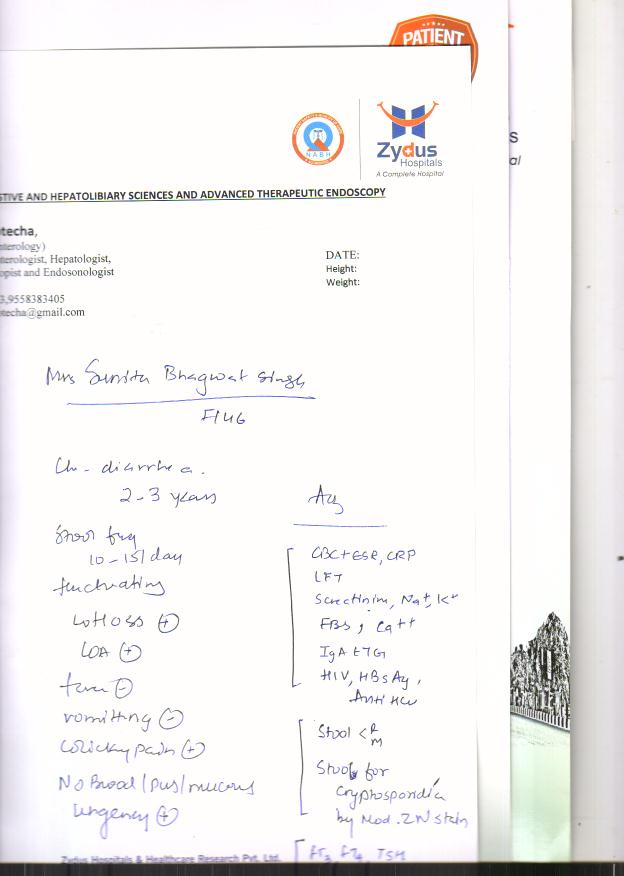 PATIENT
NABH
Zydus
Hospitals
A Complete Hospital
S
al
STIVE AND HEPATOLIBIARY SCIENCES AND ADVANCED THERAPEUTIC ENDOSCOPY
otecha,
nterology)
terologist, Hepatologist,
opist and Endosonologist
3,9558383405
otecha@gmail.com
DATE:
Height:
Weight:
Mrs Sunita Bhagwat Singh
F/46
Ch- diarrhea.
2-3 years
Stool freq
10-15/day
fluctuating
Wt loss (+)
LOA (+)
fever (-)
vomitting (-)
Colicky pain (+)
No Blood/pus/mucous
Urgency (+)
Adv
CBC+ESR, CRP
LFT
S creatinine, Na+, K+
FBS, Ca++
IgA tTG
HIV, HBsAg,
Anti HCV
Stool < R
M
Stool for
cryptosporidia
by Mod. ZN stain
fT3, fT4, TSH
Zydus Hospitals & Healthcare Research Pvt. Ltd.